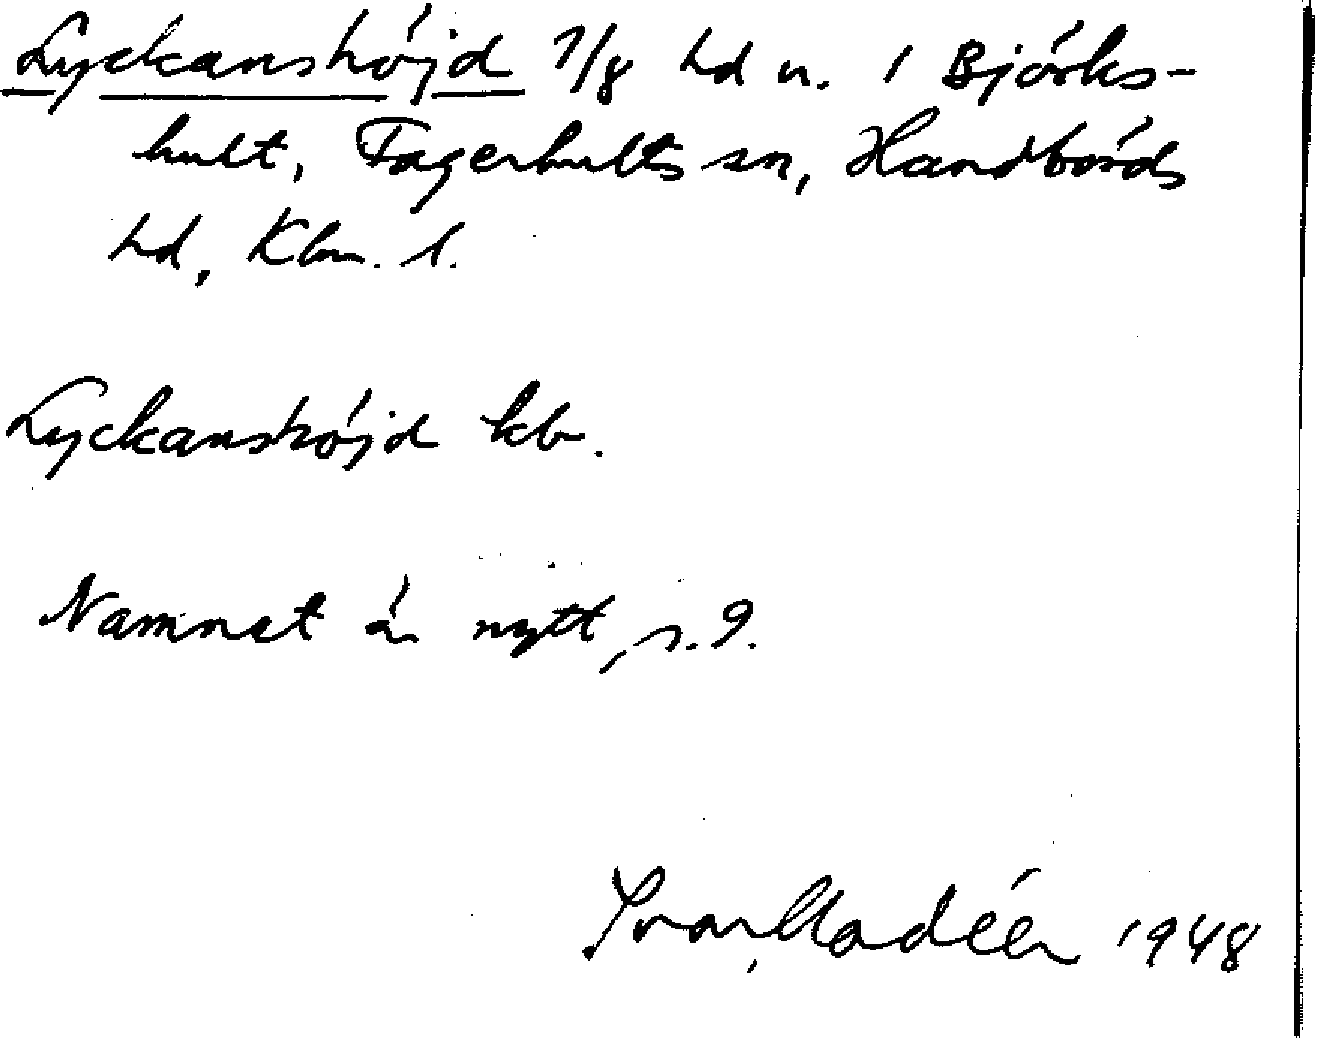 Lyckanshöjd 7/8 hd n. 1 Björks-
hult, Fagerhults sn, Handbörds
hd, Klm. l.
Lyckanshöjd kb.
Namnet är nytt, s. 9.
Ivar Modéer 1948